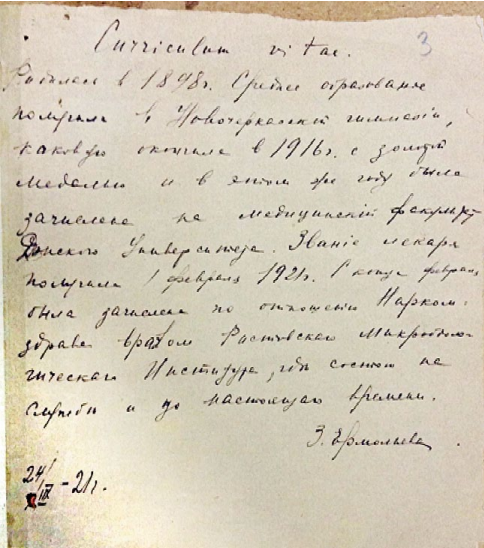 Curriculum vitae.
3
Родилась в 1898г. Среднее образование
получила в Новочеркасской гимназіи,
каковую окончила в 1916г. с золотой
медалью и в этом же году была
зачислена на медицинскій факультет
Донского Университета. Званіе лекаря
получила 1 февраля 1921г. С конца февраля
была зачислена по отношенію Нарком-
здрава врачом Ростовскаго Микробіоло-
гическаго Института, гдѣ состою на
службѣ и до настоящаго времени.
З. Ермольева.
24/IX - 21г.